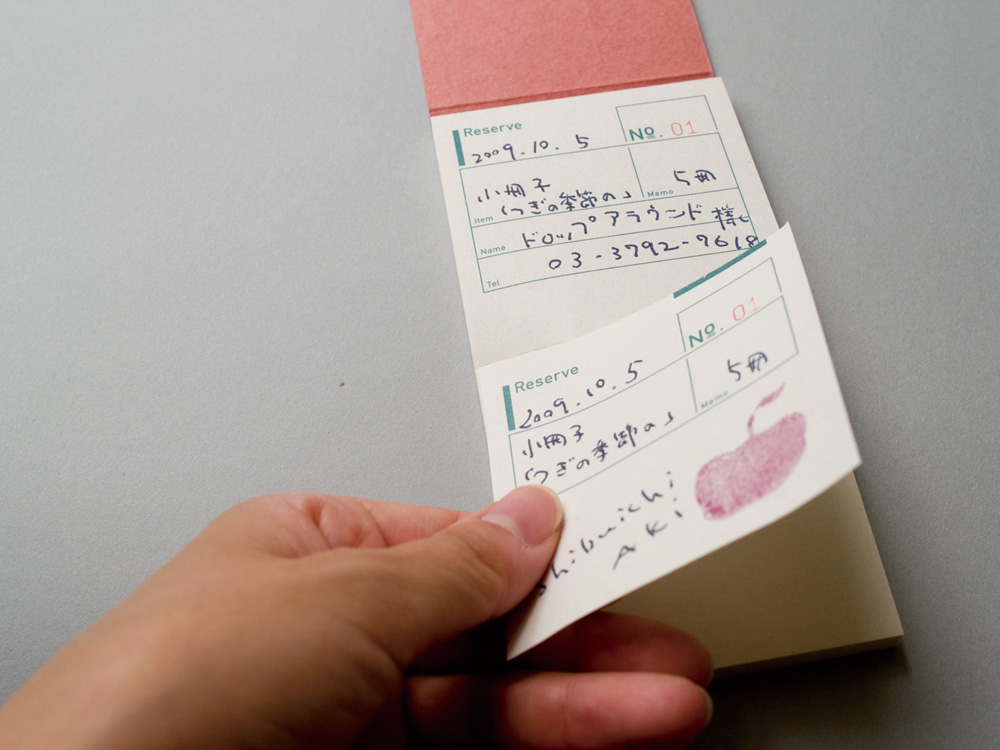 Reserve
No. 01
2009.10.5
小冊子
「つぎの季節の」
5冊
Item
Memo
Name ドロップアラウンド 様
Tel 03-3792-7618
Reserve
No. 01
2009.10.5
小冊子
「つぎの季節の」
5冊
Memo
Shibuichi
AKi